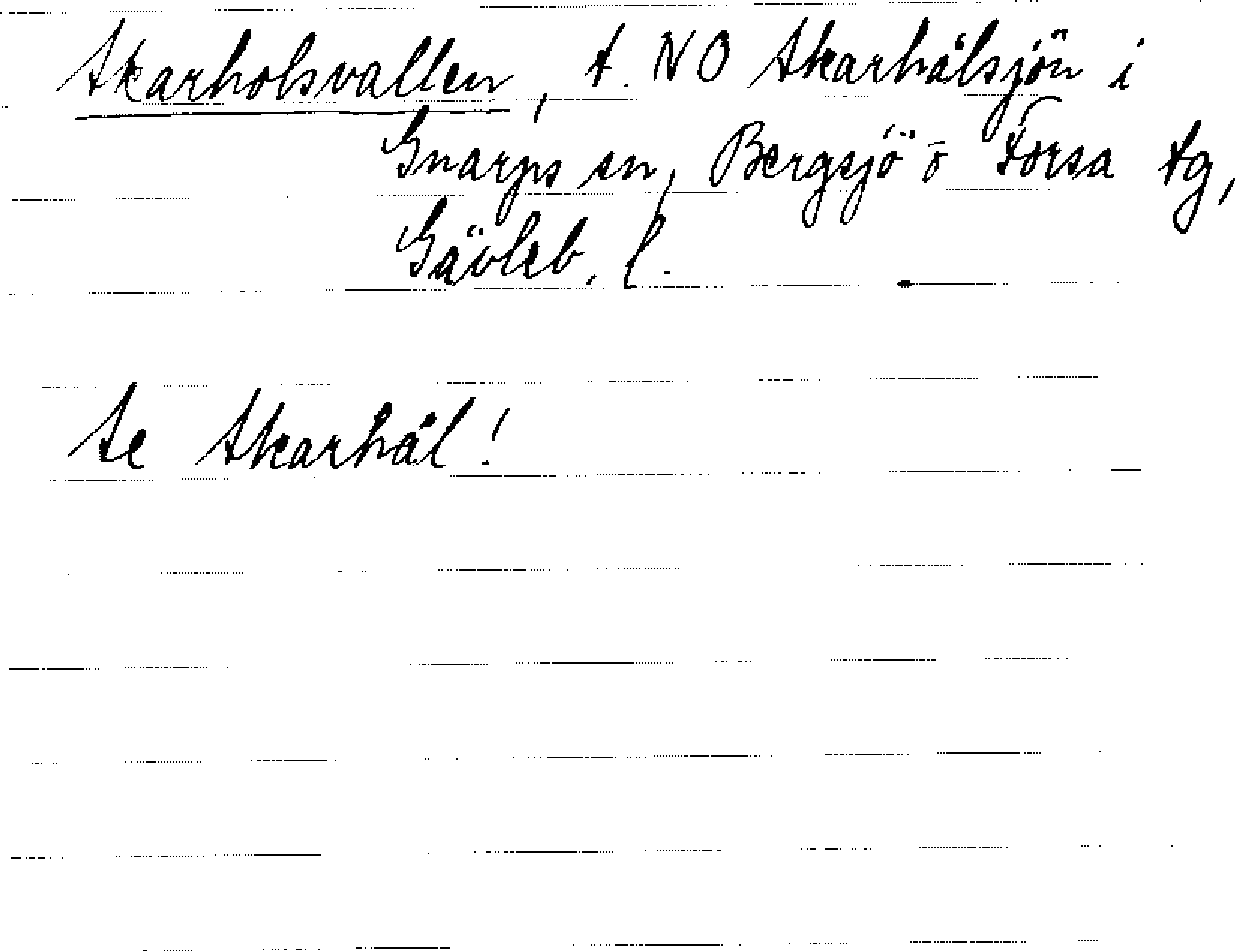 Skarholsvallen, f. NO Skarhålsjön i
Gnarps sn, Bergsjö o Forsa tg,
Gävleb. l.
Se Skarhål!